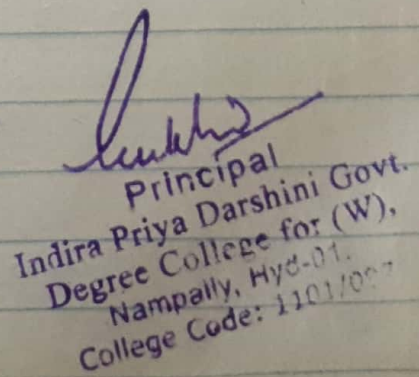 Principal
Indira Priya Darshini Govt.
Degree College for (W),
Nampally, Hyd-01.
College Code: